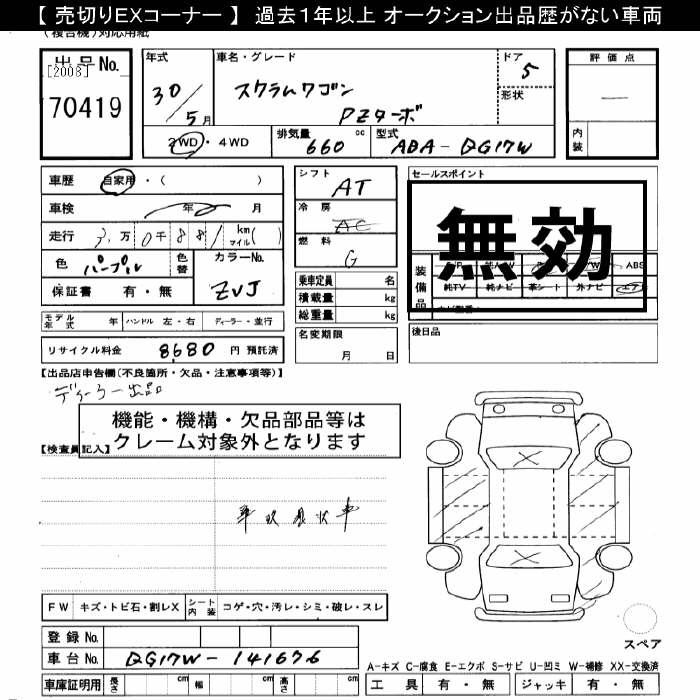 【 売切りEXコーナー 】 過去１年以上 オークション出品歴がない車両
(複合機)対応用紙
出品No.
[2008]
70419
年式
30/5月
車名・グレード
スクラムワゴン
PZターボ
ドア
5
形状
評価点
―
内装
2WD・4WD
排気量 660 cc
型式 ABA-DG17W
車歴 自家用・( )
車検 年 月
走行 3万0千881 km マイル( )
色 パープル
色替
カラーNo.
ZVJ
保証書 有・無
モデル年式 年 ハンドル 左・右 ディーラー・並行
リサイクル料金 8680 円 預託済
シフト AT
冷房 AC
燃料 G
乗車定員 名
積載量 kg
総重量 kg
名変期限
月 日
セールスポイント
無効
装備品
ABS
純TV 純ナビ 革シート 外ナビ エアB
後日品
【出品店申告欄(不良箇所・欠品・注意事項等)】
ディーラー出品
機能・機構・欠品部品等は
クレーム対象外となります
【検査員記入】
車取現状車
FW キズ・トビ石・割レX シート内装 コゲ・穴・汚レ・シミ・破レ・スレ
登録No.
車台No. DG17W-141676
車庫証明用 長さ cm 幅 cm 高さ cm
スペア
A-キズ C-腐食 E-エクボ S-サビ U-凹ミ W-補修 XX-交換済
工具 有・無 ジャッキ 有・無